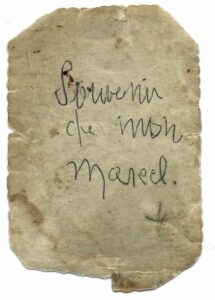 Souvenir
de mon
Marcel.